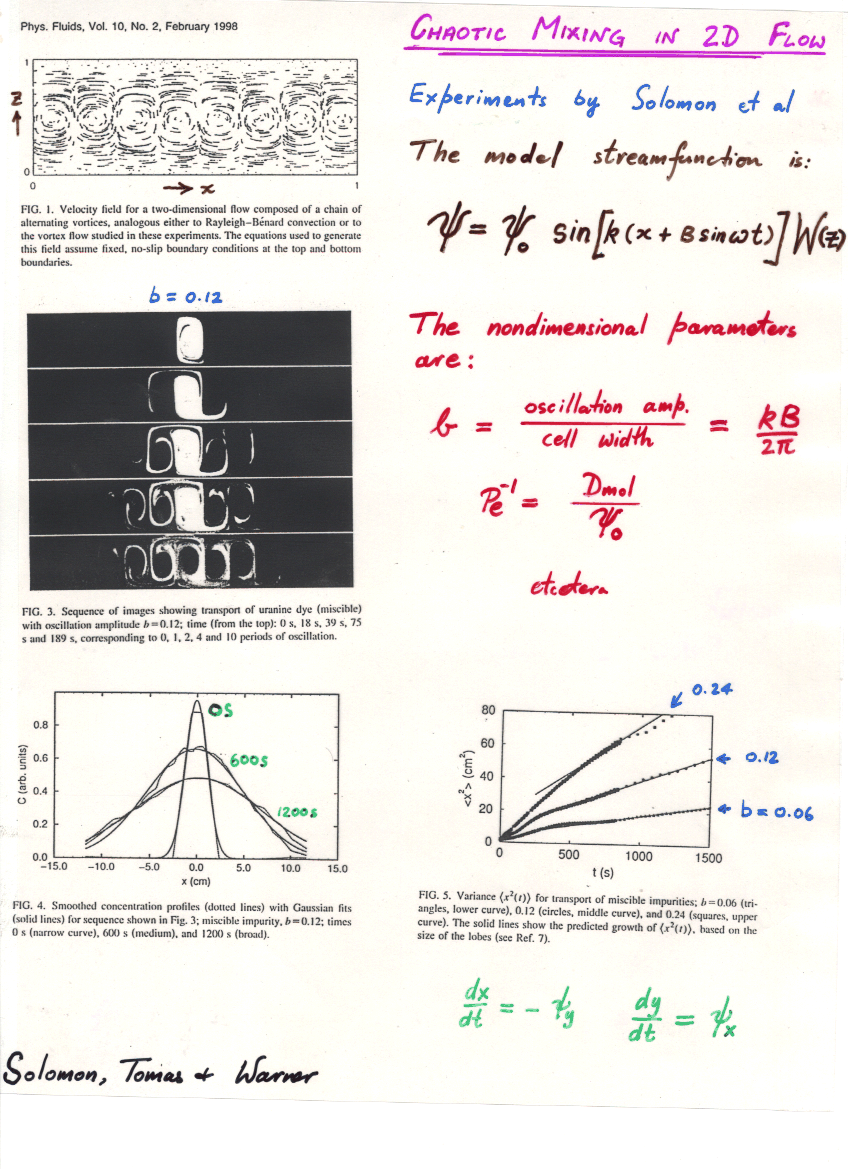 Phys. Fluids, Vol. 10, No. 2, February 1998
CHAOTIC MIXING IN 2D FLOW
1
z
0
0
→ x
1
FIG. 1. Velocity field for a two-dimensional flow composed of a chain of
alternating vortices, analogous either to Rayleigh–Bénard convection or to
the vortex flow studied in these experiments. The equations used to generate
this field assume fixed, no-slip boundary conditions at the top and bottom
boundaries.
Experiments by Solomon et al
The model streamfunction is:
ψ = ψ₀ sin[k(x + B sin ωt)] W(z)
b = 0.12
FIG. 3. Sequence of images showing transport of uranine dye (miscible)
with oscillation amplitude b=0.12; time (from the top): 0 s, 18 s, 39 s, 75
s and 189 s, corresponding to 0, 1, 2, 4 and 10 periods of oscillation.
The nondimensional parameters
are:
b = oscillation amp. / cell width = kB / 2π
Pe⁻¹ = Dmol / ψ₀
etcetera
C (arb. units)
0.8
0.6
0.4
0.2
0.0
0S
600s
1200s
−15.0 −10.0 −5.0 0.0 5.0 10.0 15.0
x (cm)
FIG. 4. Smoothed concentration profiles (dotted lines) with Gaussian fits
(solid lines) for sequence shown in Fig. 3; miscible impurity, b=0.12; times
0 s (narrow curve), 600 s (medium), and 1200 s (broad).
<x²> (cm²)
80
60
40
20
0
0.24
0.12
b = 0.06
0 500 1000 1500
t (s)
FIG. 5. Variance ⟨x²(t)⟩ for transport of miscible impurities; b=0.06 (tri-
angles, lower curve), 0.12 (circles, middle curve), and 0.24 (squares, upper
curve). The solid lines show the predicted growth of ⟨x²(t)⟩, based on the
size of the lobes (see Ref. 7).
dx/dt = − ψy dy/dt = ψx
Solomon, Tomas + Warner